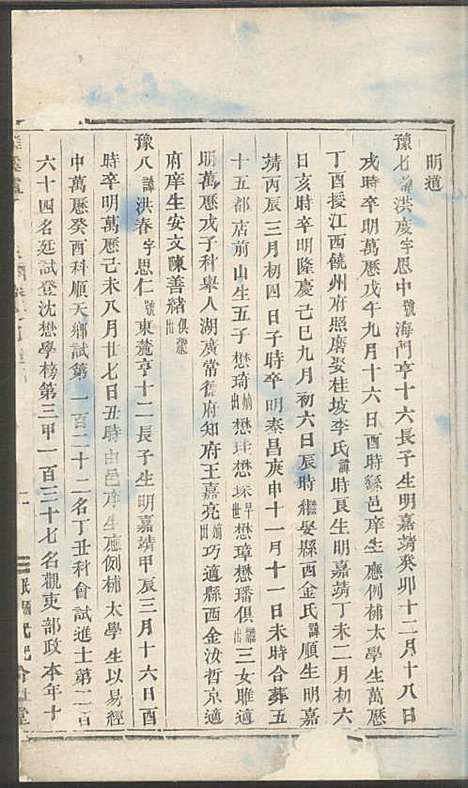 明道
豫七諱洪度字思中號海門亨十六長子生明嘉靖癸卯十二月十八日
戌時卒明萬曆戊午年九月十六日酉時繇邑庠生應例補太學生萬曆
丁酉授江西饒州府照磨娶桂坡李氏諱時良生明嘉靖丁未二月初六
日亥時卒明隆慶己巳九月初六日辰時繼娶縣西金氏諱順生明嘉
靖丙辰三月初四日子時卒明泰昌庚申十一月十一日未時合葬五
十五都店前山生五子懋琦嫡出懋珪懋㻏早世懋璋懋璠俱繼出三女睢適
明萬曆戊子科舉人湖廣常德府知府王嘉亮嫡出巧適縣西金汝哲京適
府庠生安文陳善緒俱繼出
豫八諱洪春字思仁號東麓亨十二長子生明嘉靖甲辰三月十六日酉
時卒明萬曆己未八月廿七日丑時由邑庠生應例補太學生以易經
中萬曆癸酉科順天鄉試第一百二十二名丁丑科會試進士第二百
六十四名廷試登沈懋學榜第三甲一百三十七名觀吏部政本年十